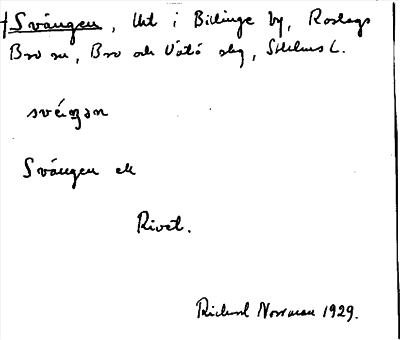 † Svängen, lht i Billinge by, Roslags
Bro sn, Bro och Vätö skg, Sthlms L.
svéŋən
Svängen ek
Rivet.
Richard Norrman 1929.